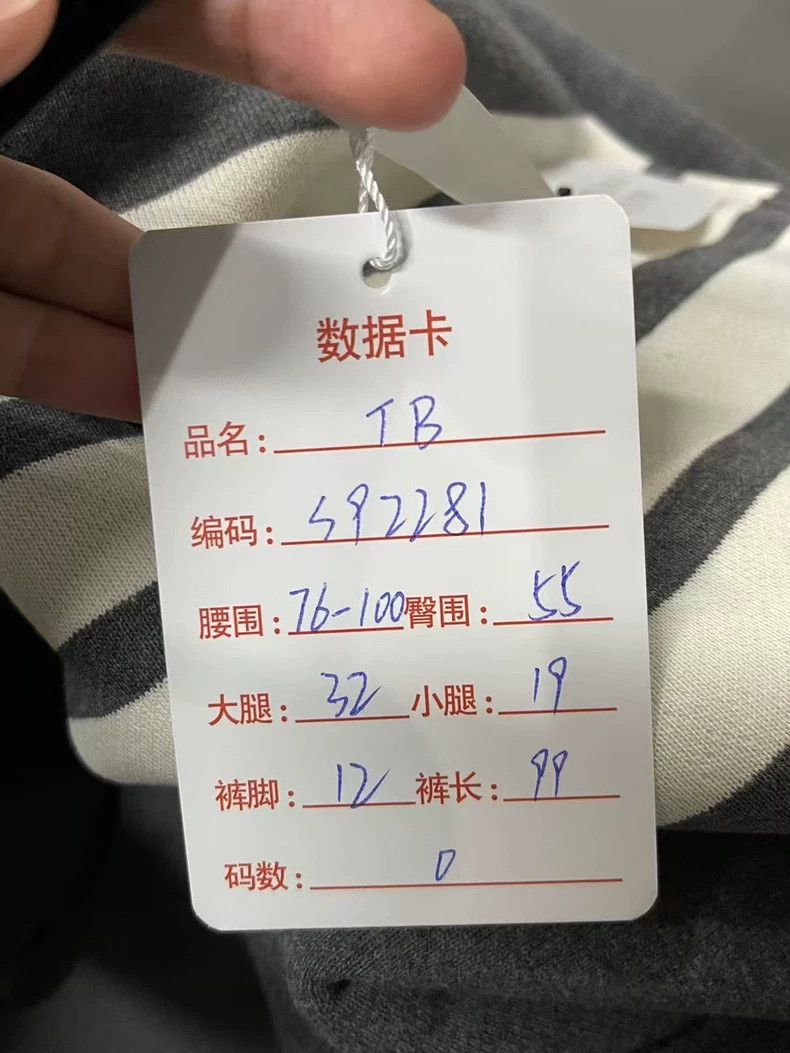 数据卡
品名: TB
编码: 592281
腰围: 76-100 臀围: 55
大腿: 32 小腿: 19
裤脚: 12 裤长: 99
码数: 0